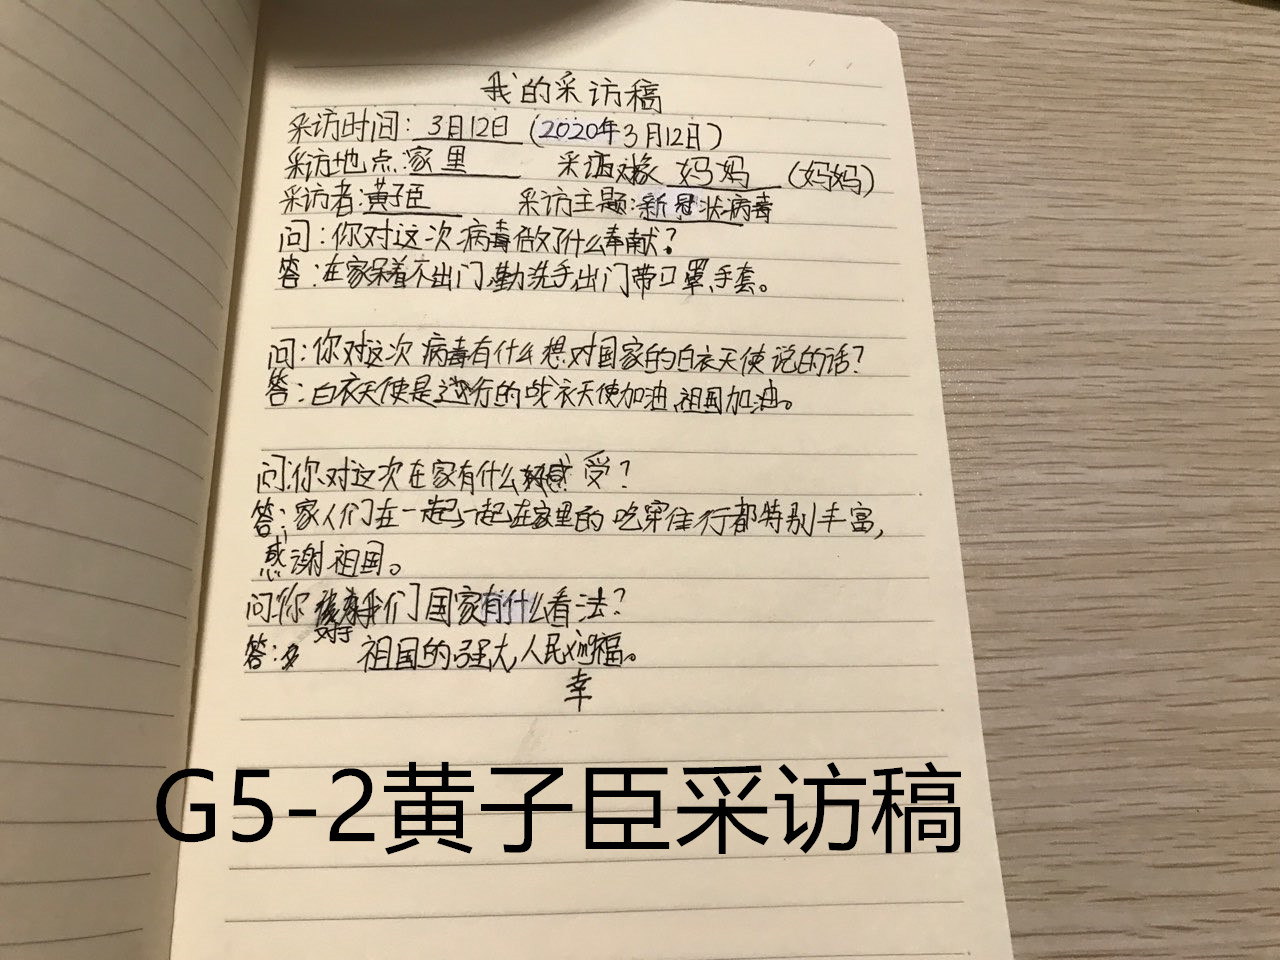 我的采访稿
采访时间：3月12日（2020年3月12日）
采访地点：家里 采访对象 妈妈（妈妈）
采访者：黄子臣 采访主题：新冠状病毒
问：你对这次病毒做了什么奉献？
答：在家呆着不出门，勤洗手出门带口罩、手套。
问：你对这次病毒有什么想对国家的白衣天使说的话？
答：白衣天使是逆行的战衣天使加油，祖国加油。
问：你对这次在家有什么感受？
答：家人们在一起，一起在家里的吃穿住行都特别丰富，
感谢祖国。
问：你对于我们国家有什么看法？
答：祖国的强大，人民幸福。
G5-2黄子臣采访稿